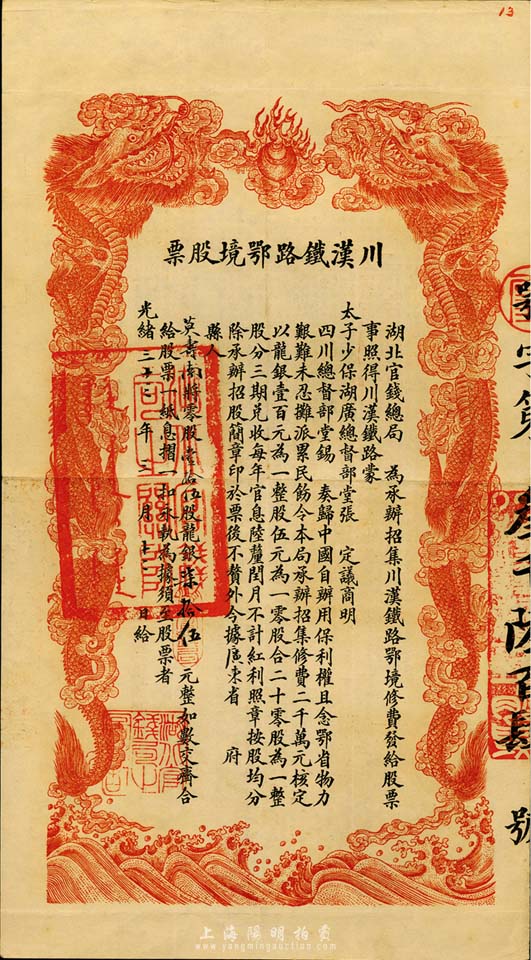 13
川漢鐵路鄂境股票
湖北官錢總局　為承辦招集川漢鐵路鄂境修費發給股票
事照得川漢鐵路蒙
太子少保湖廣總督部堂張　定議商明
四川總督部堂錫　奏歸中國自辦用保利權且念鄂省物力
艱難未忍攤派累民飭令本局承辦招集修費二千萬元核定
以龍銀壹百元為一整股伍元為一零股合二十零股為一整
股分三期兑收每年官息陸釐閏月不計紅利照章按股均分
除承辦招股簡章印於票後不贅外今據廣東省　府
縣人
英壽南將零股壹拾伍股龍銀柒拾伍元整如數交齊合
給股票一紙息摺一扣永執為據須至股票者
光緒三十二年三月十二日給
鄂字第　叁千陸百　號
上海陽明拍賣
www.yangmingauction.com